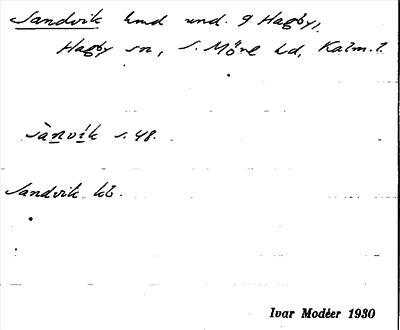 Sandvik hmd und. 9 Hagby,
Hagby sn, S. Möre hd, Kalm. l.
sànvík s. 48.
Sandvik kb.
Ivar Modéer 1930